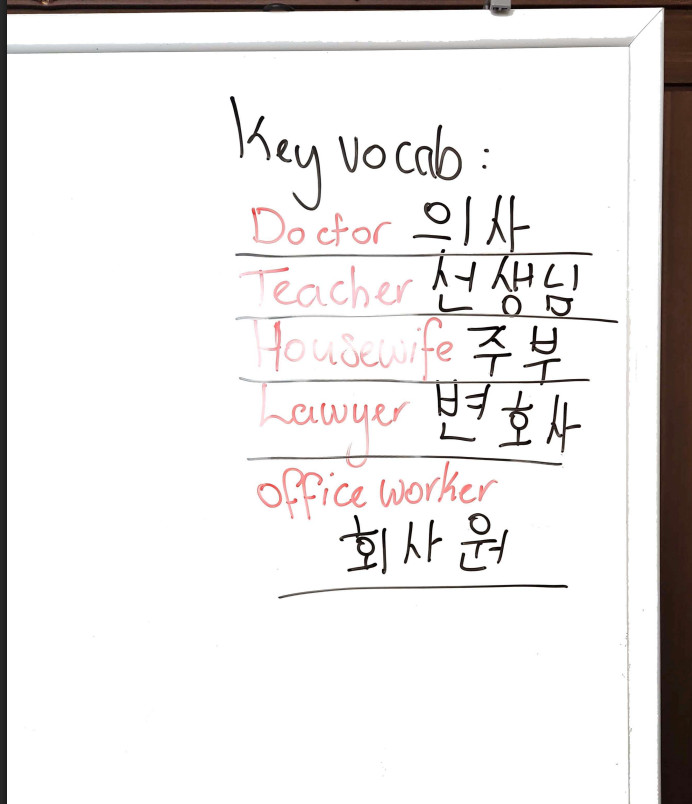 Key vocab :
Doctor 의사
Teacher 선생님
Housewife 주부
Lawyer 변호사
office worker
회사원